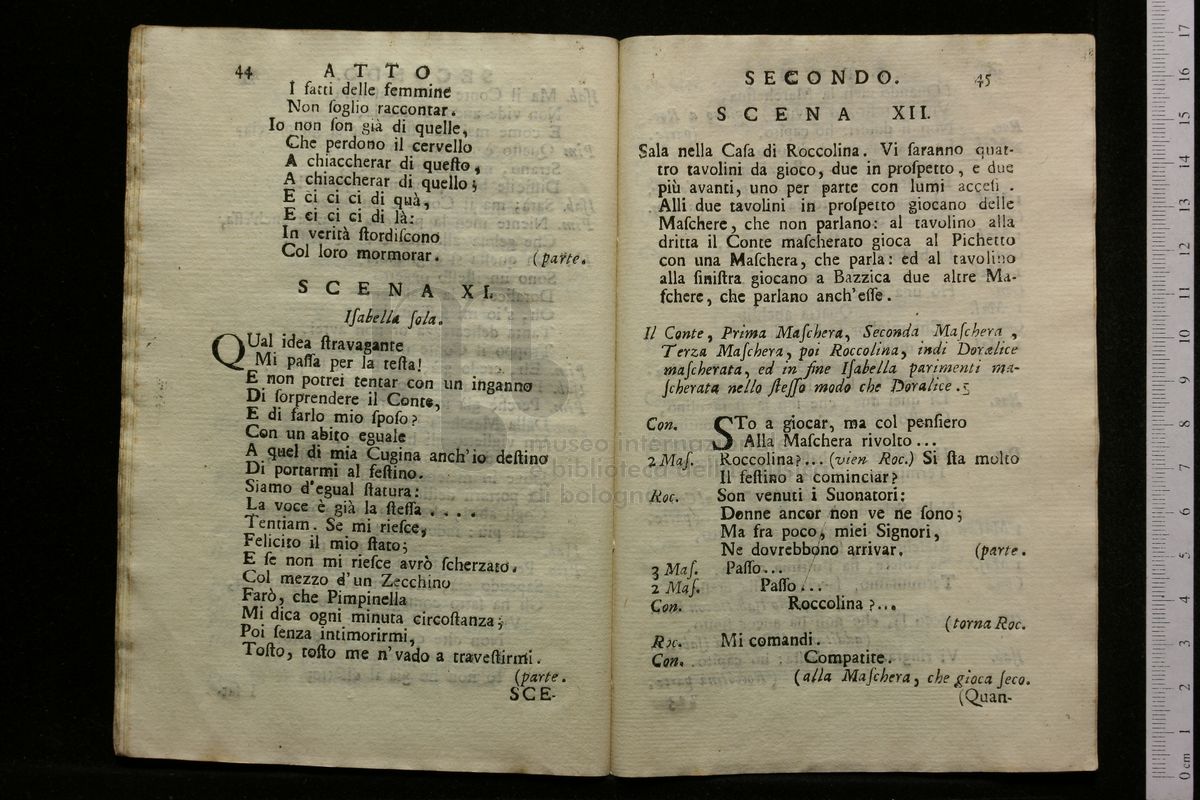 44 ATTO
I fatti delle femmine
Non ſoglio raccontar.
Io non ſon già di quelle,
Che perdono il cervello
A chiaccherar di queſto,
A chiaccherar di quello;
E ci ci ci di quà,
E ci ci ci di là:
In verità ſtordiſcono
Col loro mormorar. (parte.
SCENA XI.
Iſabella ſola.
QUal idea ſtravagante
Mi paſſa per la teſta!
E non potrei tentar con un inganno
Di ſorprendere il Conte,
E di farlo mio ſpoſo?
Con un abito eguale
A quel di mia Cugina anch'io deſtino
Di portarmi al feſtino.
Siamo d'egual ſtatura:
La voce è già la ſteſſa . . . .
Tentiam. Se mi rieſce,
Felicito il mio ſtato;
E ſe non mi rieſce avrò ſcherzato.
Col mezzo d'un Zecchino
Farò, che Pimpinella
Mi dica ogni minuta circoſtanza;
Poi ſenza intimorirmi,
Toſto, toſto me n'vado a traveſtirmi.
(parte.
SCE-
SECONDO. 45
SCENA XII.
Sala nella Caſa di Roccolina. Vi ſaranno quat-
tro tavolini da gioco, due in proſpetto, e due
più avanti, uno per parte con lumi acceſi.
Alli due tavolini in proſpetto giocano delle
Maſchere, che non parlano: al tavolino alla
dritta il Conte maſcherato gioca al Pichetto
con una Maſchera, che parla: ed al tavolino
alla ſiniſtra giocano a Bazzica due altre Ma-
ſchere, che parlano anch'eſſe.
Il Conte, Prima Maſchera, Seconda Maſchera,
Terza Maſchera, poi Roccolina, indi Doralice
maſcherata, ed in fine Iſabella parimenti ma-
ſcherata nello ſteſſo modo che Doralice.
Con. STo a giocar, ma col penſiero
Alla Maſchera rivolto...
2 Maſ. Roccolina?... (vien Roc.) Si ſta molto
Il feſtino a cominciar?
Roc. Son venuti i Suonatori:
Donne ancor non ve ne ſono;
Ma fra poco, miei Signori,
Ne dovrebbono arrivar. (parte.
3 Maſ. Paſſo...
2 Maſ. Paſſo...
Con. Roccolina?...
(torna Roc.
Roc. Mi comandi.
Con. Compatite.
(alla Maſchera, che gioca ſeco.
(Quan-